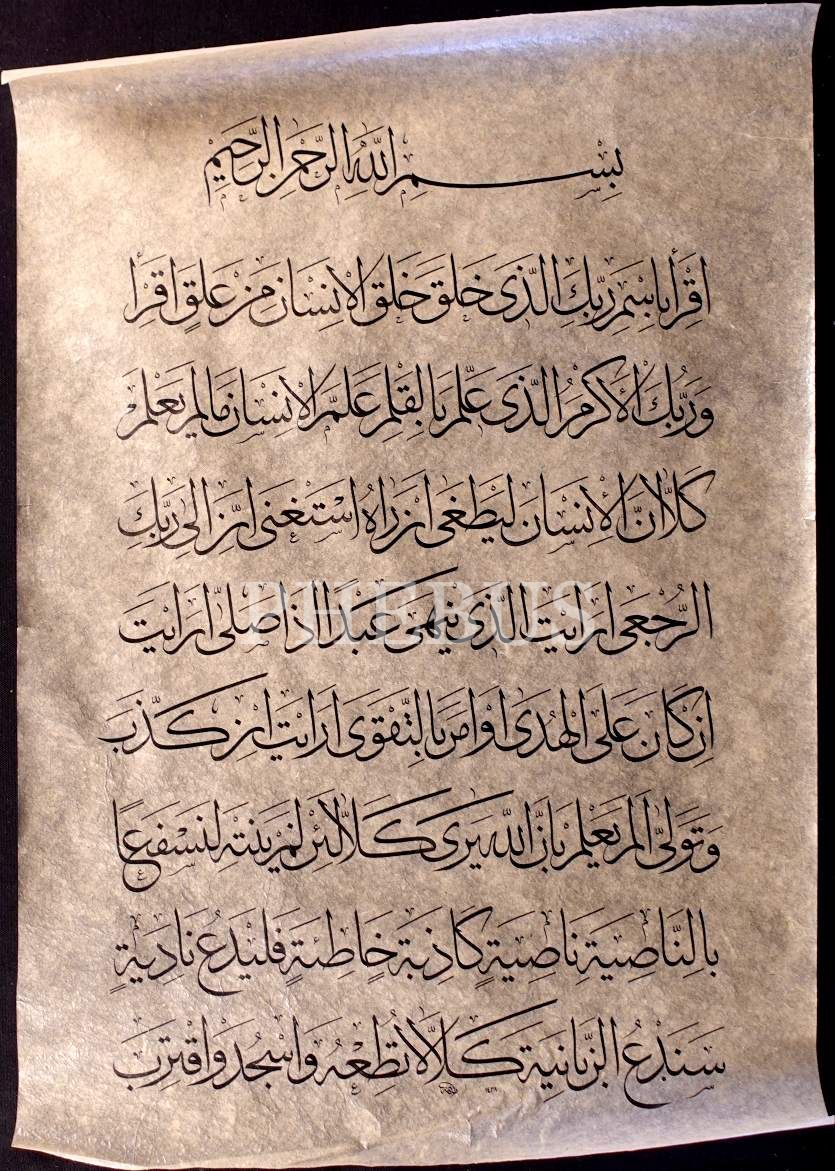 بِسْمِ اللّٰهِ الرَّحْمٰنِ الرَّحِيمِ
اقْرَأْ بِاسْمِ رَبِّكَ الَّذَى خَلَقَ خَلَقَ الْاِنْسَانَ مِنْ عَلَقٍ اقْرَأْ
وَرَبُّكَ الْاَكْرَمُ الَّذَى عَلَّمَ بِالْقَلَمِ عَلَّمَ الْاِنْسَانَ مَا لَمْ يَعْلَمْ
كَلَّا اِنَّ الْاِنْسَانَ لَيَطْغَى اَنْ رَاٰهُ اسْتَغْنَى اِنَّ اِلَى رَبِّكَ
الرُّجْعَى اَرَاَيْتَ الَّذَى يَنْهَى عَبْدًا اِذَا صَلَّى اَرَاَيْتَ
اِنْ كَانَ عَلَى الْهُدَى اَوْ اَمَرَ بِالتَّقْوَى اَرَاَيْتَ اِنْ كَذَّبَ
وَتَوَلَّى اَلَمْ يَعْلَمْ بِاَنَّ اللّٰهَ يَرَى كَلَّا لَئِنْ لَمْ يَنْتَهِ لَنَسْفَعًا
بِالنَّاصِيَةِ نَاصِيَةٍ كَاذِبَةٍ خَاطِئَةٍ فَلْيَدْعُ نَادِيَةٍ
سَنَدْعُ الزَّبَانِيَةَ كَلَّا لَا تُطِعْهُ وَاسْجُدْ وَاقْتَرِبْ
PHEBUS